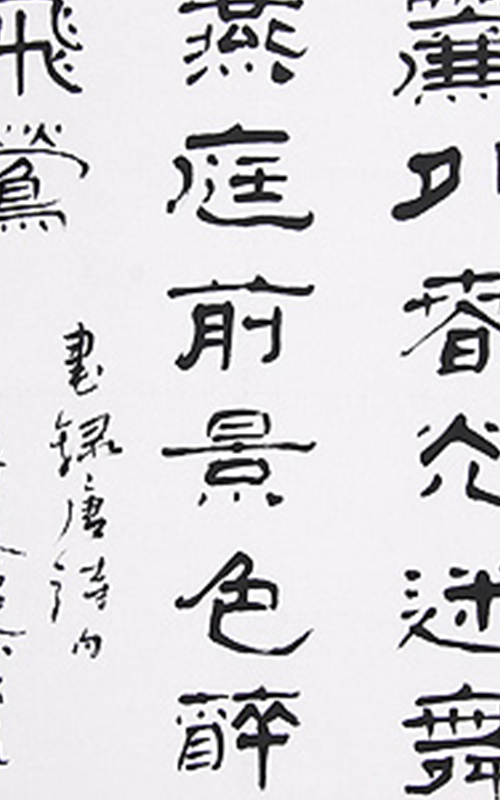 簾外春光迷舞
燕庭前景色醉
飛鶯
書録唐詩句